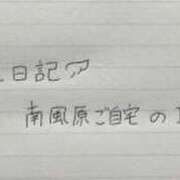 日記
南風原ご自宅の